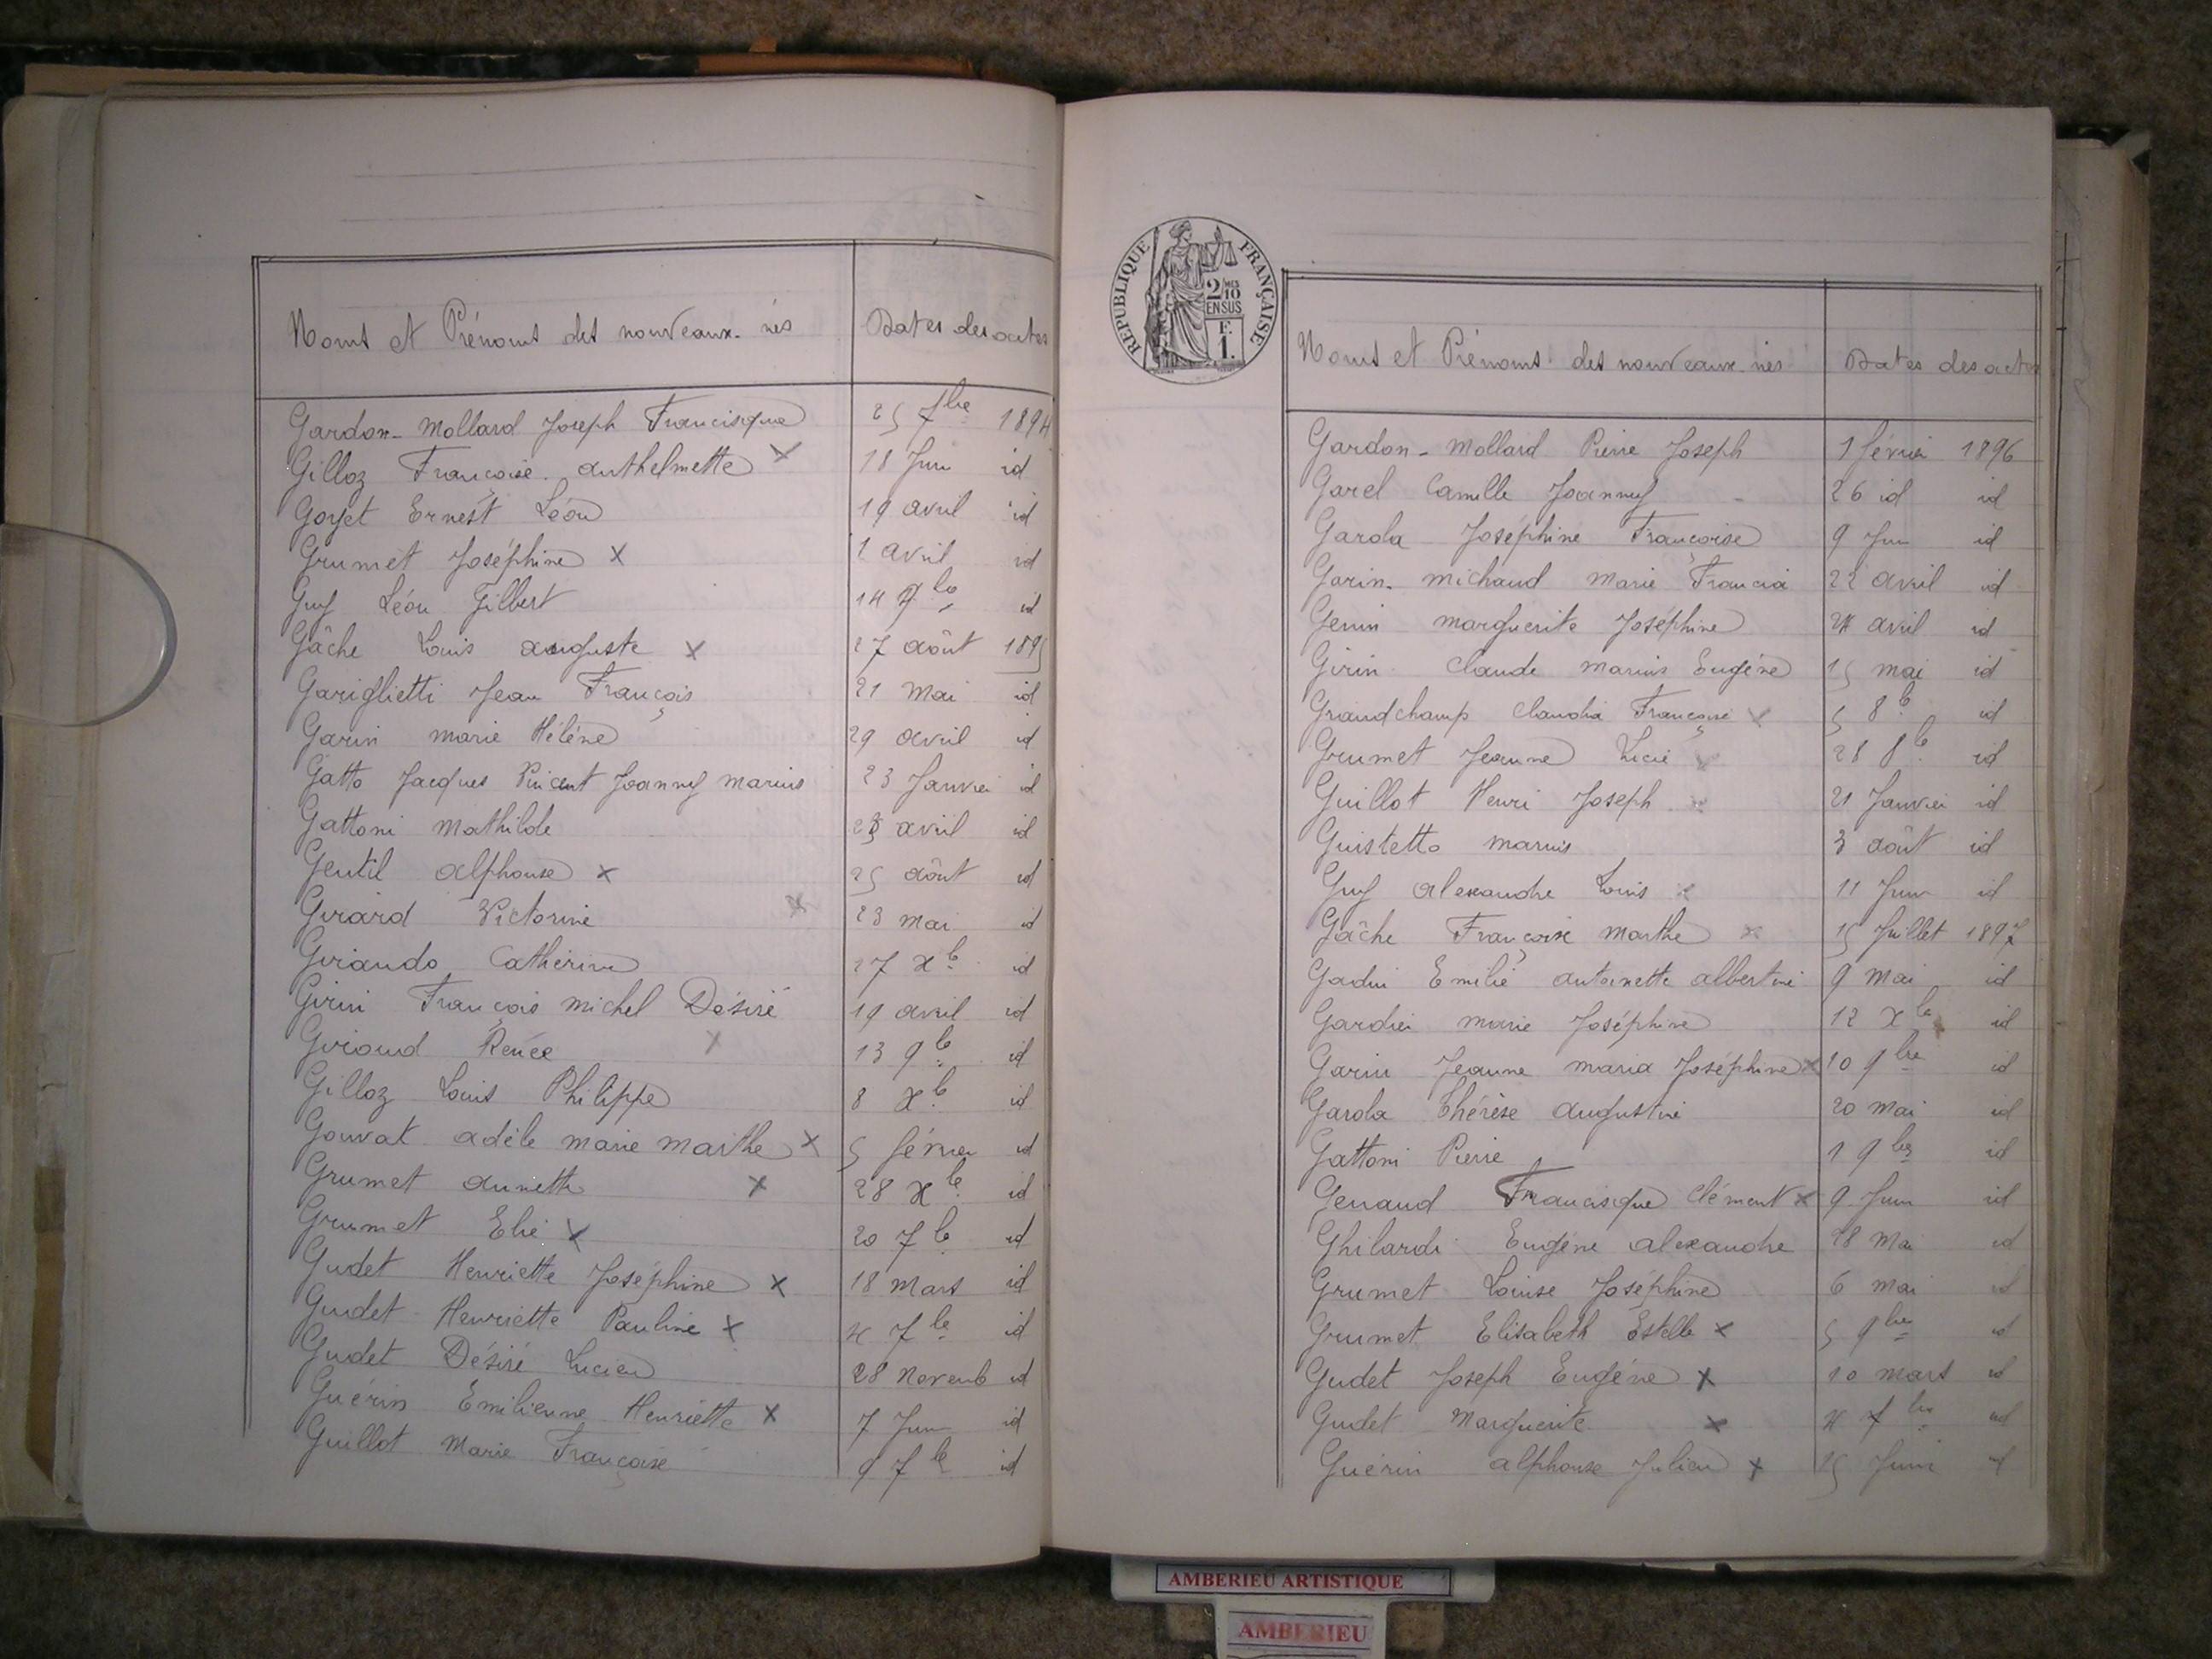 Noms et Prénoms des nouveaux-nés Dates des actes
Gardon-Mollard Joseph Francisque 25 7bre 1894
Gilloz Françoise anthelmette x 18 Juin id
Goyet Ernest Léon 19 avril id
Grumet Joséphine x 1 avril id
Guy Léon Gilbert 14 9bre id
Gâche Louis auguste x 27 août 1895
Gariglietti Jean François 21 Mai id
Garin marie Hélène 29 avril id
Gatto Jacques Vincent Joanny marius 23 Janvier id
Gattoni Mathilde avril id
Gentil alphonse x 25 août id
Girard Victorine x 23 mai id
Giraudo Catherine 27 Xb. id
Girin François Michel Désiré 19 avril id
Giroud Renée x 13 9b. id
Gilloz Louis Philippe 8 Xb. id
Gouvat adèle marie marthe x 5 février id
Grumet annette x 28 Xb. id
Grumet Elie x 20 7b. id
Gudet Henriette Joséphine x 18 Mars id
Gudet Henriette Pauline x 4 7b. id
Gudet Désiré Lucien 28 Novemb id
Guérin Emilienne Henriette x 7 Juin id
Guillot Marie Françoise 9 7b. id
REPUBLIQUE FRANÇAISE
2/MES 10
EN SUS
F.
1.
Noms et Prénoms des nouveaux-nés Dates des actes
Gardon-Mollard Pierre Joseph 1 février 1896
Garel Camille Joanny 26 id id
Garola Joséphine Françoise 9 Juin id
Garin-michaud Marie Francia 22 avril id
Genin marguerite Joséphine 24 avril id
Girin Claude marius Eugène 15 mai id
Grandchamp Claudia Françoise x 5 8b. id
Grumet Jeanne Lucie x 28 8b. id
Guillot Henri Joseph x 21 Janvier id
Guistetto marius 3 août id
Guy alexandre Louis x 11 Juin id
Gâche Françoise Marthe x 15 Juillet 1897
Gadin Emilie antoinette albertine 9 Mai id
Gardier marie Joséphine 12 Xb. id
Garin Jeanne maria Joséphine x 10 9bre id
Garola Thérèse augustine 20 mai id
Gattoni Pierre 1 9bre id
Genaud Francisque Clément x 9 Juin id
Ghilardi Eugène alexandre 18 Mai id
Grumet Louise Joséphine 6 mai id
Grumet Elisabeth Estelle x 5 9bre id
Gudet Joseph Eugène x 10 mars id
Gudet Marguerite x 4 7bre id
Guérin alphonse Julien x 15 Juin id
AMBERIEU ARTISTIQUE
AMBERIEU